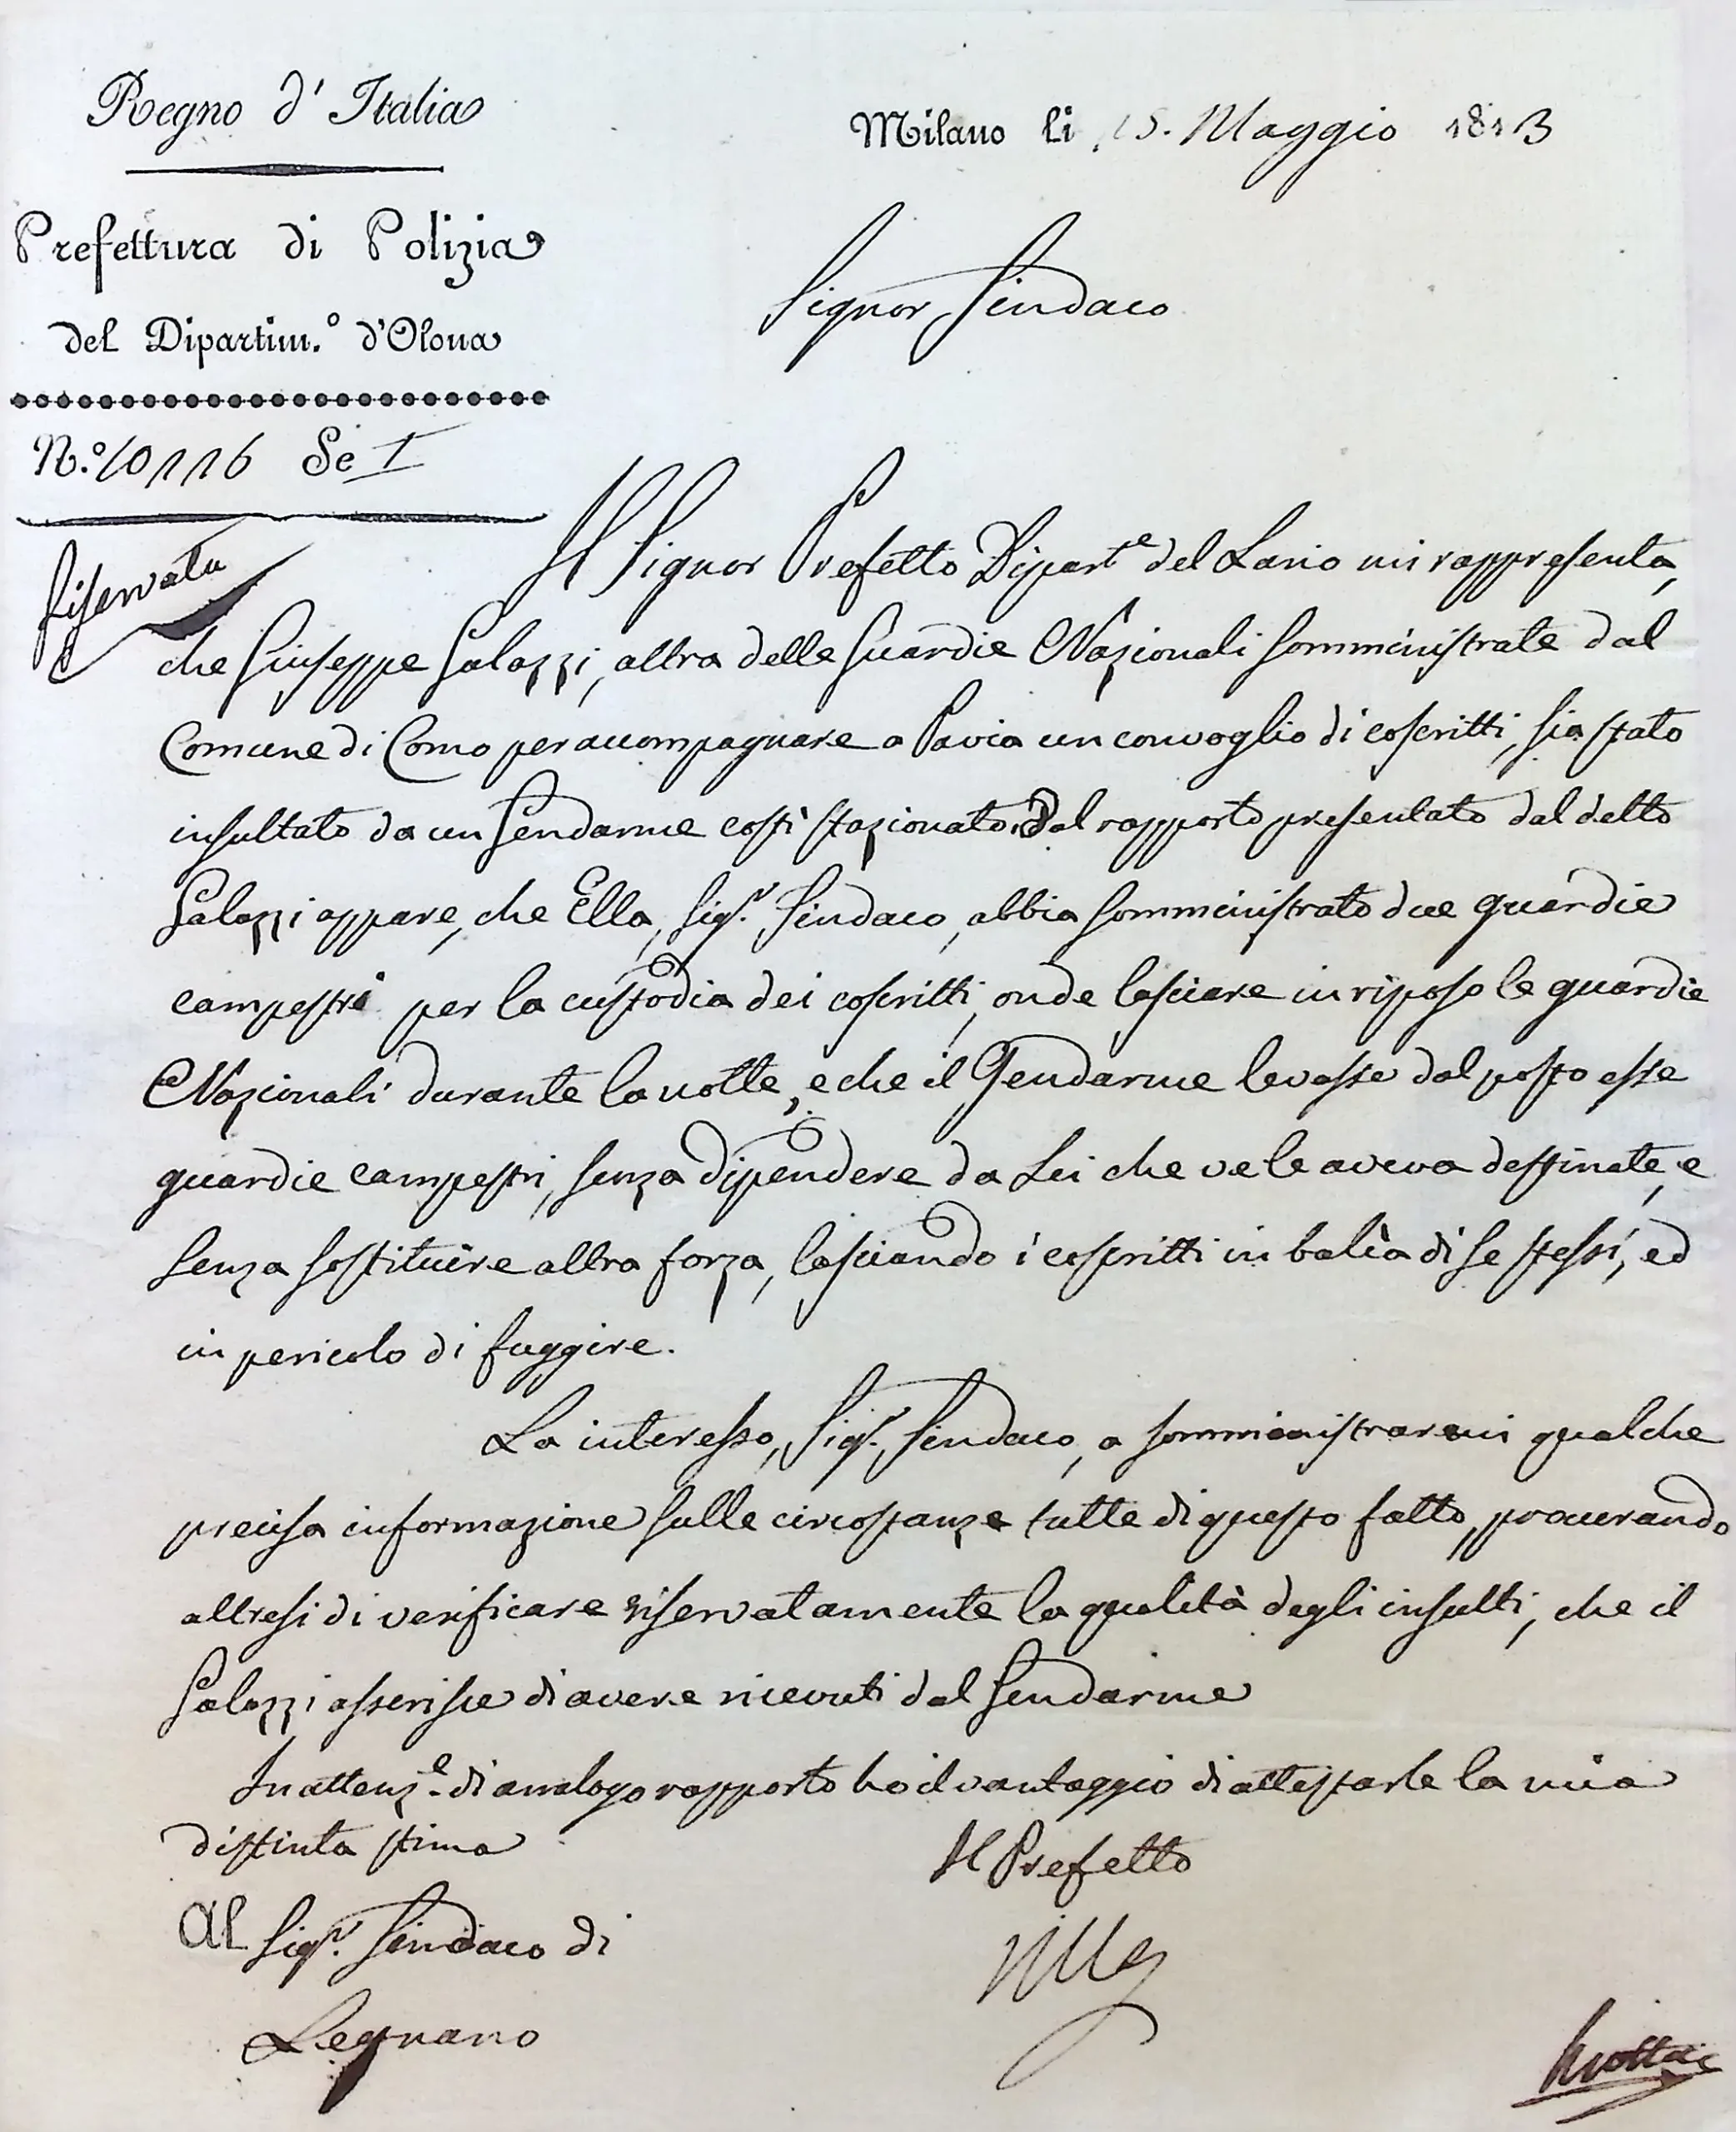 Regno d' Italia
Prefettura di Polizia
del Dipartim.° d'Olona
N.° 10116 Se I
Riservata
Milano li 15. Maggio 1813
Signor Sindaco
Il Signor Prefetto Dipart.e del Lario mi rappresenta,
che Giuseppe Galazzi, altra delle Guardie Nazionali somministrate dal
Comune di Como per accompagnare a Pavia un convoglio di coscritti, sia stato
insultato da un Gendarme costì stazionato. Dal rapporto presentato dal detto
Galazzi appare, che Ella, Sig.r Sindaco, abbia somministrato due guardie
campestri per la custodia dei coscritti, onde lasciare in riposo le guardie
Nazionali durante la notte, e che il Gendarme levasse dal posto esse
guardie campestri, senza dipendere da Lei che ve le aveva destinate, e
senza sostituire altra forza, lasciando i coscritti in balìa di se stessi, ed
in pericolo di fuggire.
La interesso, Sig.r Sindaco, a somministrarmi qualche
precisa informazione sulle circostanze tutte di questo fatto, procurando
altresi di verificare riservatamente la qualità degli insulti, che il
Galazzi asserisce di avere ricevuti dal Gendarme
In attenz.e di analogo rapporto ho il vantaggio di attestarle la mia
distinta stima
Il Prefetto
Villa
Al Sig.r Sindaco di
Legnano